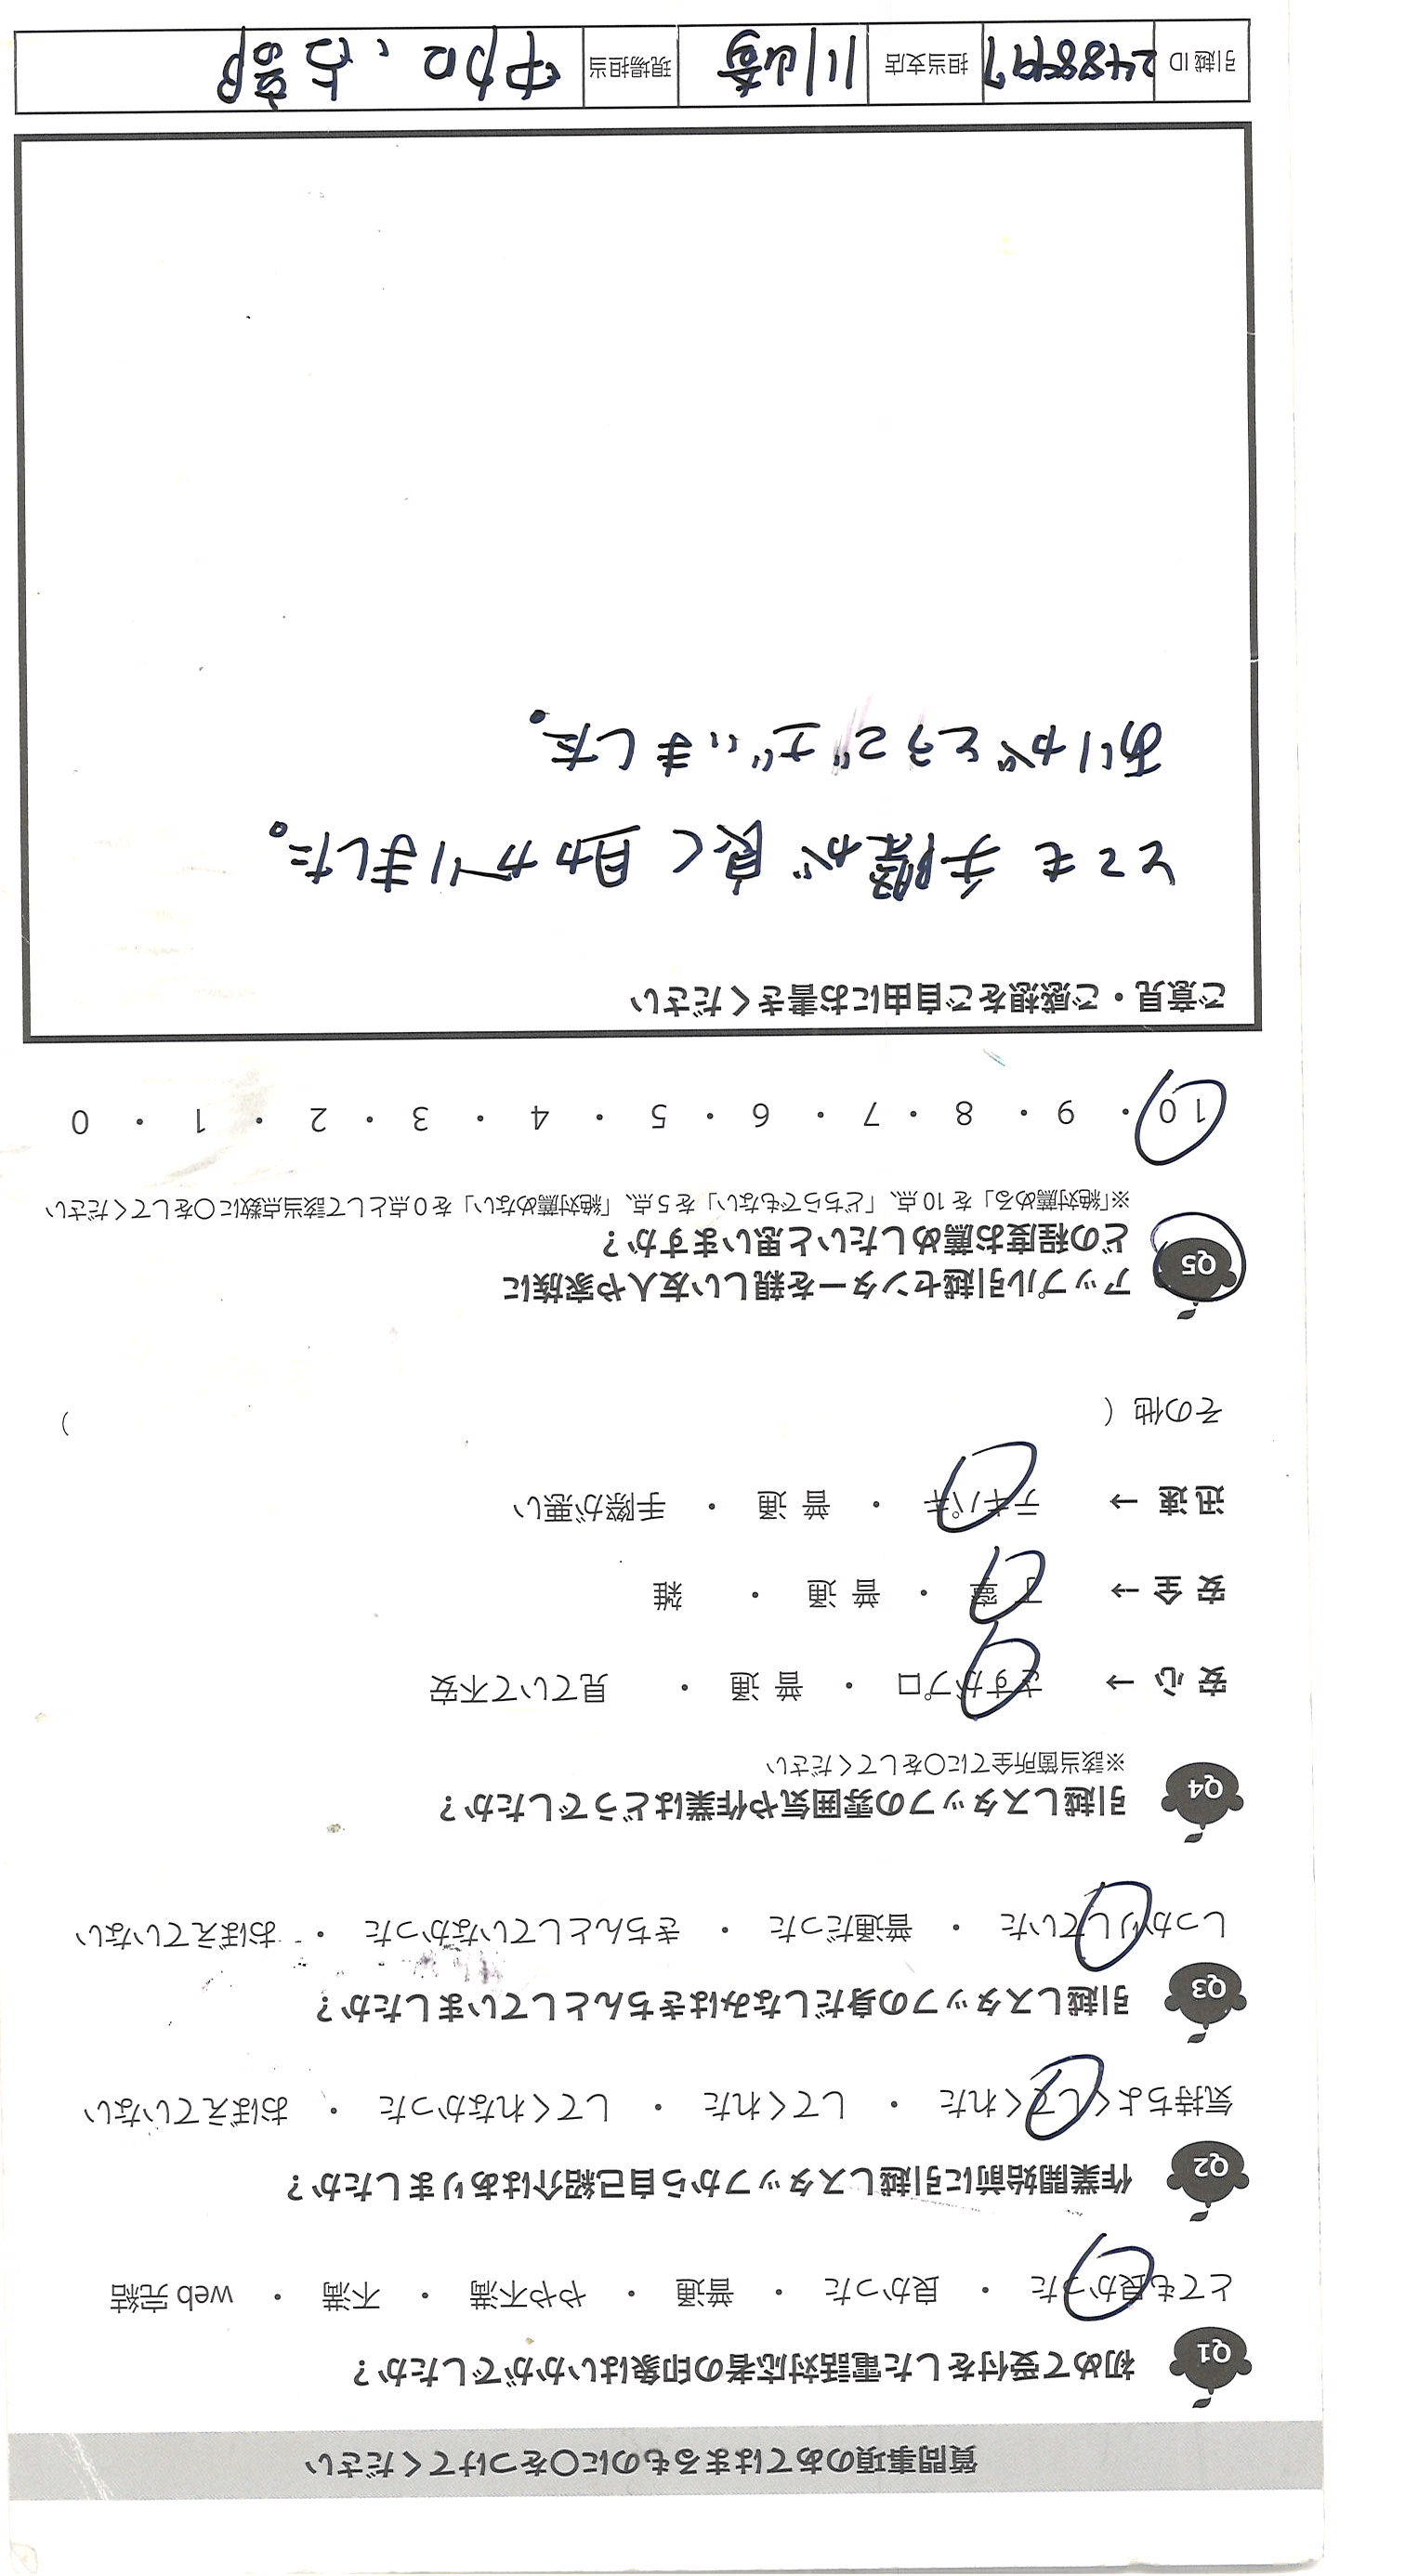 質問事項のあてはまるものに〇をつけてください
Q1 初めて受付をした電話対応者の印象はいかがでしたか？
とても良かった ・ 良かった ・ 普通 ・ やや不満 ・ 不満 ・ web 完結
Q2 作業開始前に引越しスタッフから自己紹介はありましたか？
気持ちよくしてくれた ・ してくれた ・ してくれなかった ・ おぼえていない
Q3 引越しスタッフの身だしなみはきちんとしていましたか？
しっかりしていた ・ 普通だった ・ きちんとしていなかった ・ おぼえていない
Q4 引越しスタッフの雰囲気や作業はどうでしたか？
※該当箇所全てに〇をしてください
安 心 → さすがプロ ・ 普 通 ・ 見ていて不安
安 全 → 丁 寧 ・ 普 通 ・ 雑
迅 速 → テキパキ ・ 普 通 ・ 手際が悪い
その他（ ）
Q5 アップル引越センターを親しい友人や家族に
どの程度お薦めしたいと思いますか？
※「絶対薦める」を 10 点、「どちらでもない」を 5 点、「絶対薦めない」を 0 点として該当点数に〇をしてください
10 ・ 9 ・ 8 ・ 7 ・ 6 ・ 5 ・ 4 ・ 3 ・ 2 ・ 1 ・ 0
ご意見・ご感想をご自由にお書きください
とても手際が良く助かりました。
ありがとうございました。
引越 ID 担当支店 川崎 現場担当